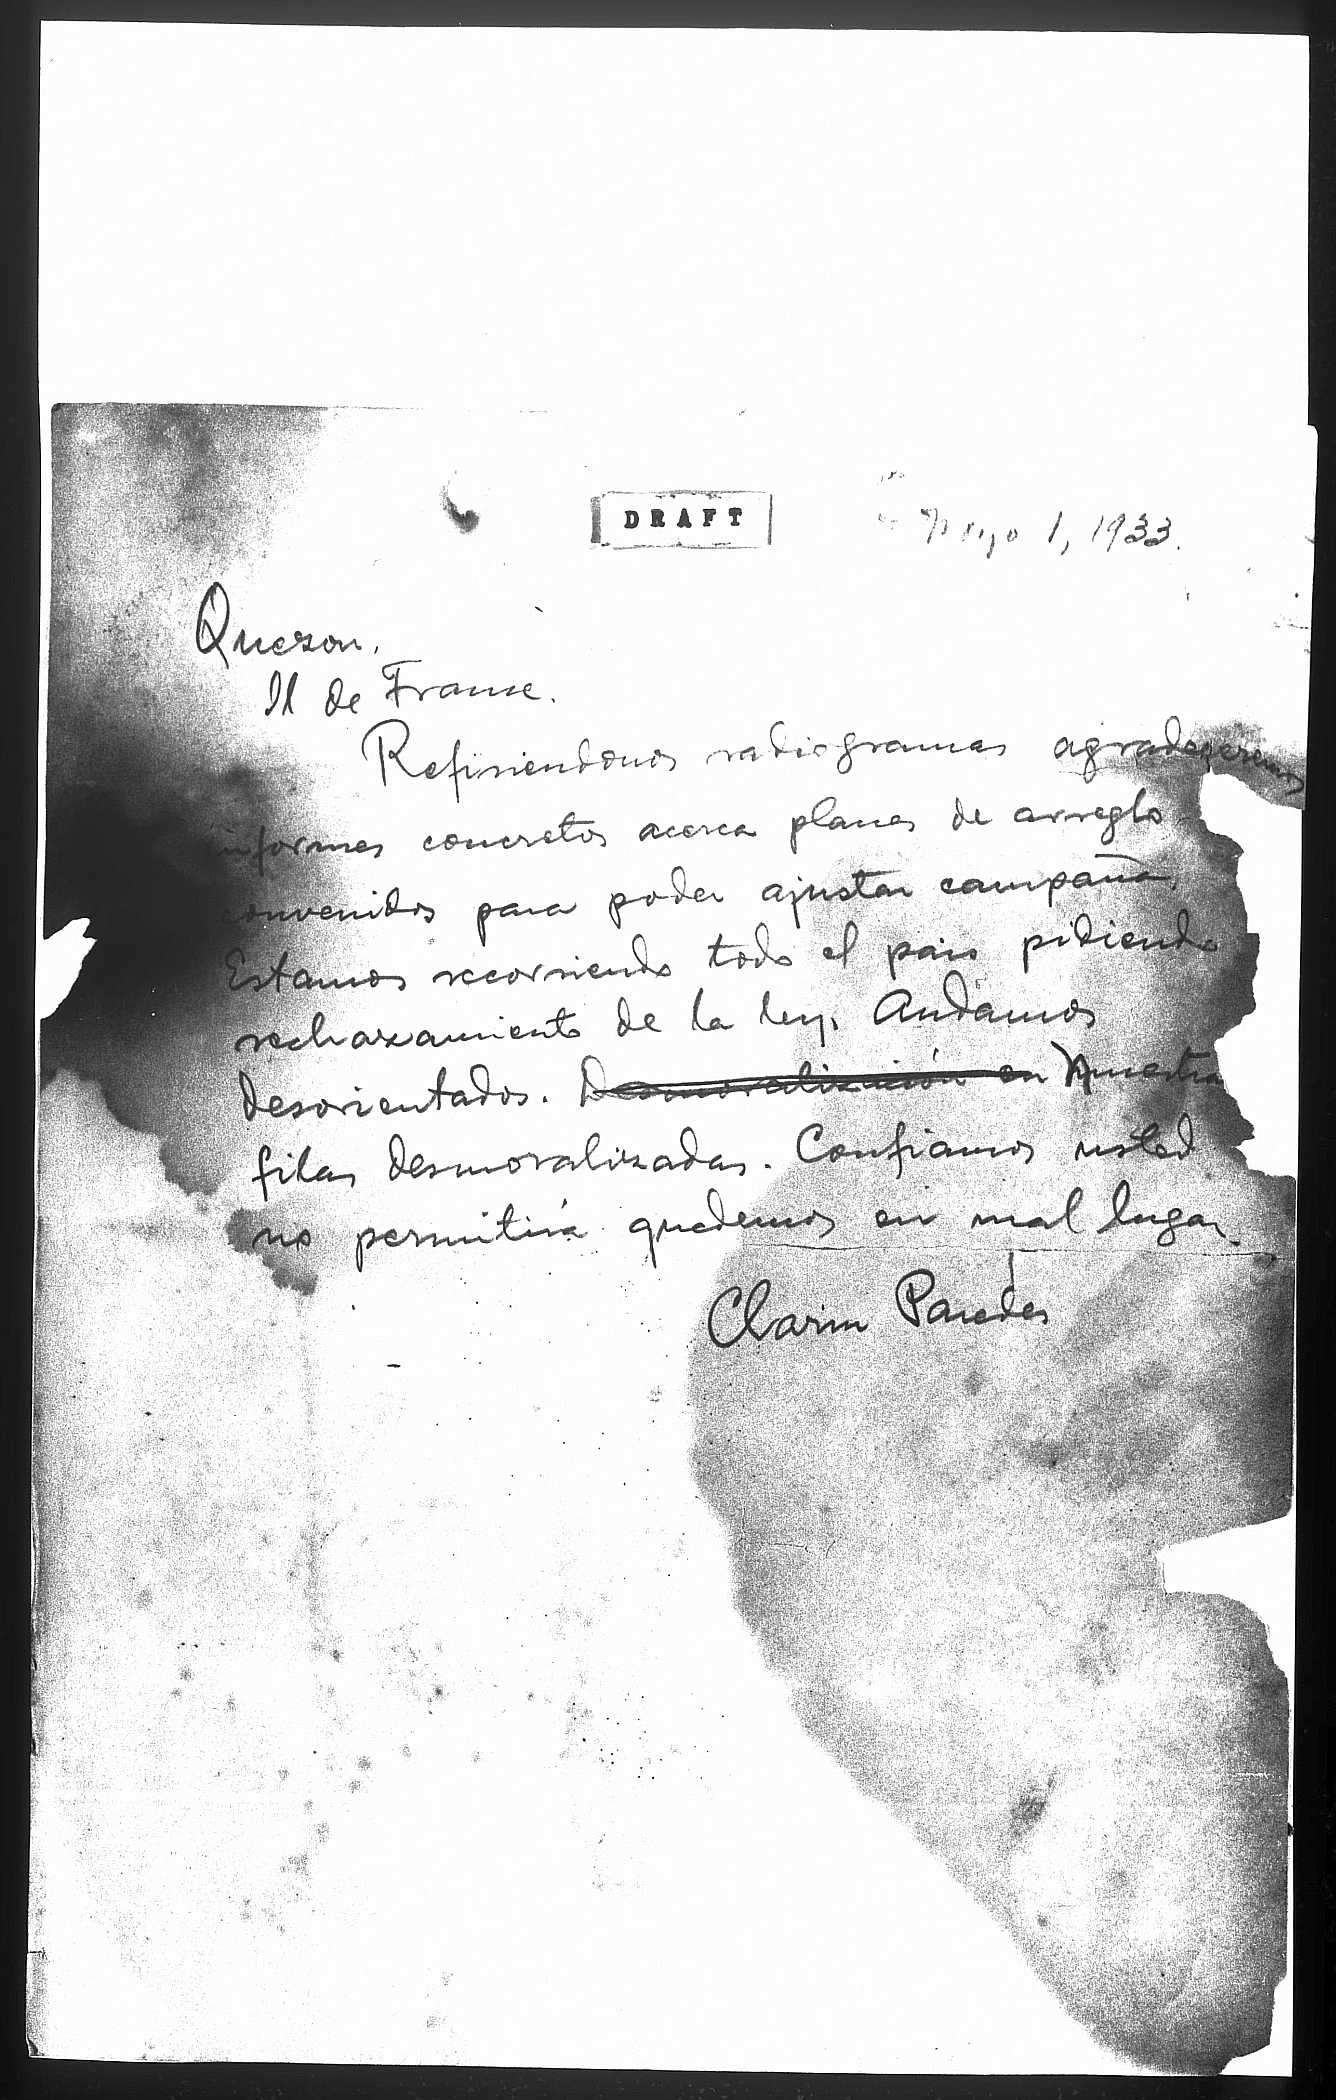 DRAFT
Mayo 1, 1933.
Quezon.
Il de France.
Refiriendonos radiogramas agradeceremos
informes concretos acerca planes de arreglo
convenidos para poder ajustar campaña.
Estamos recorriendo todo el pais pidiendo
rechazamiento de la ley. Andamos
desorientados. Desmoralización en Nuestra
filas desmoralizadas. Confiamos usted
no permitirá quedemos en mal lugar.
Clarin Paredes